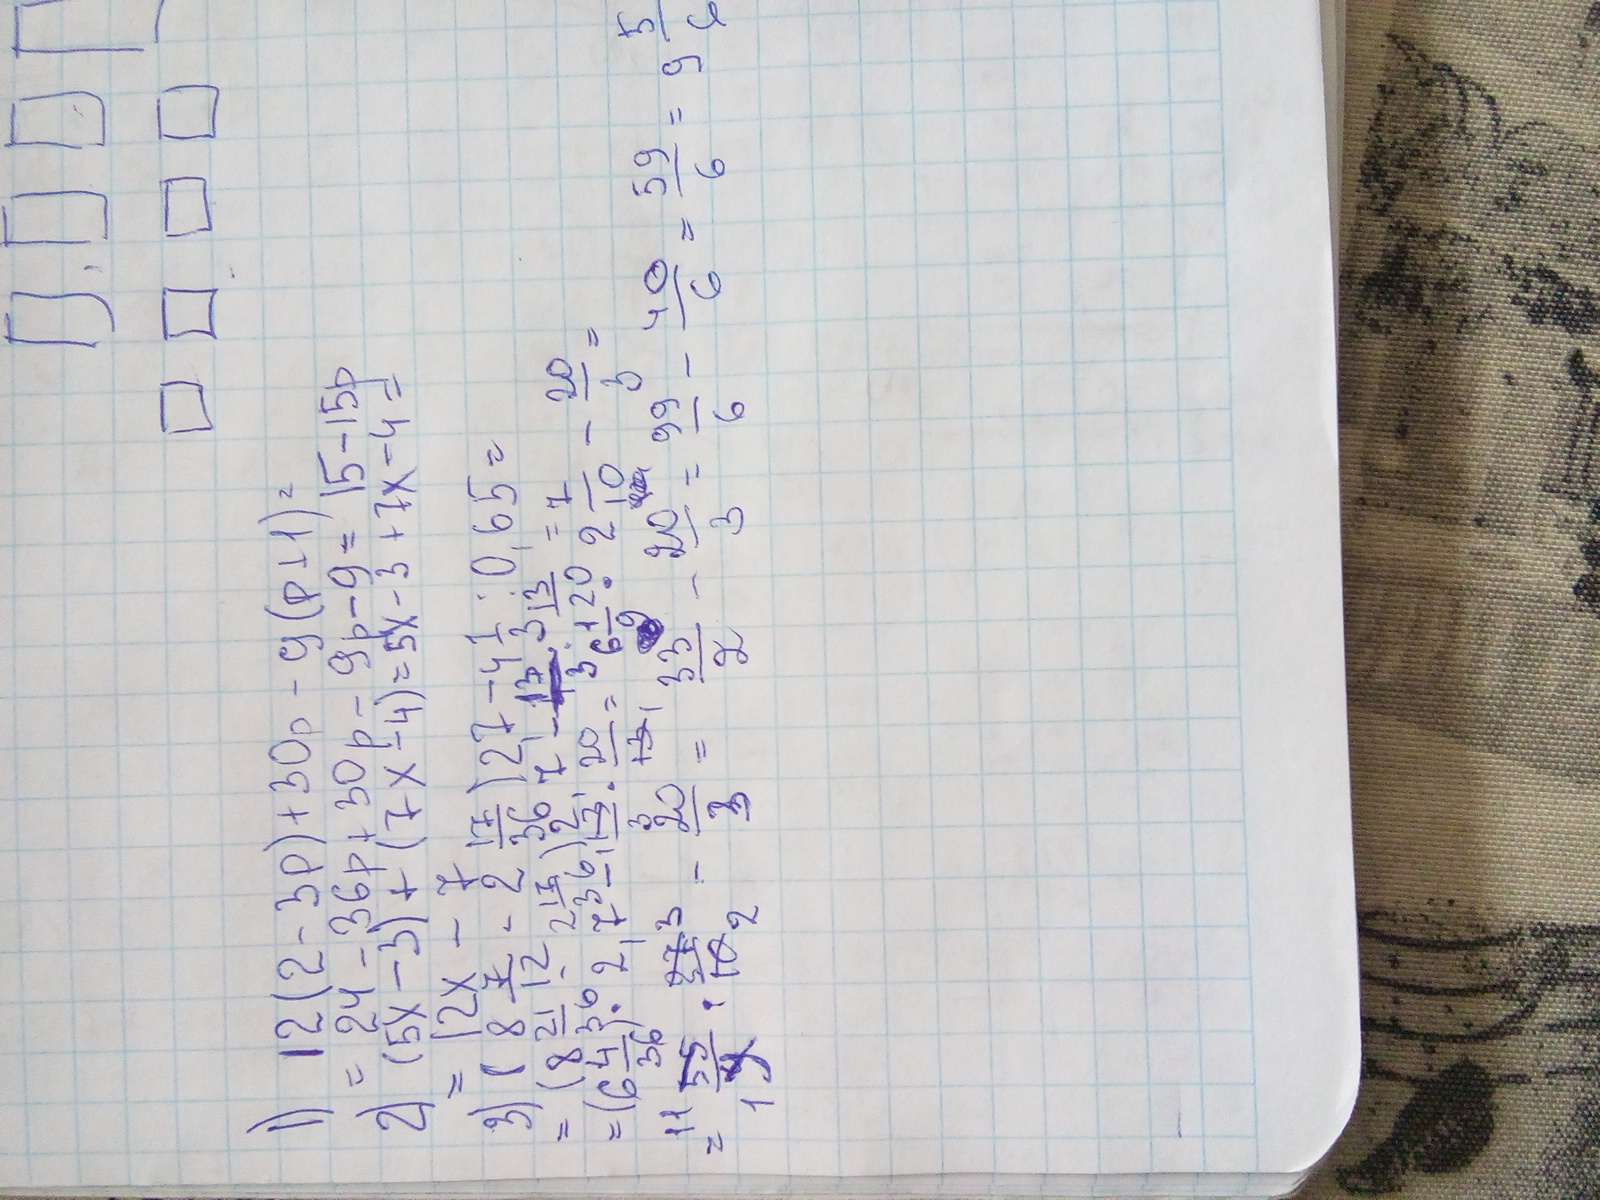 1) 12(2-3p)+30p-9(p+1)=
=24-36p+30p-9p-9=15-15p
2) (5x-3)+(7x-4)=5x-3+7x-4=
=12x-7
3) (8 7/12 - 2 17/36) 2,7 - 4 1/3 : 0,65=
=(8 21/36 - 2 17/36) 2,7 - 13/3 :
=(6 4/36) · 2,7 - 13/3 · 20/13 = 6 1/9 · 2 7/10 - 20/3 =
= 55/9 · 27/10 - 20/3 = 33/2 - 20/3 = 99/6 - 40/6 = 59/6 = 9 5/6